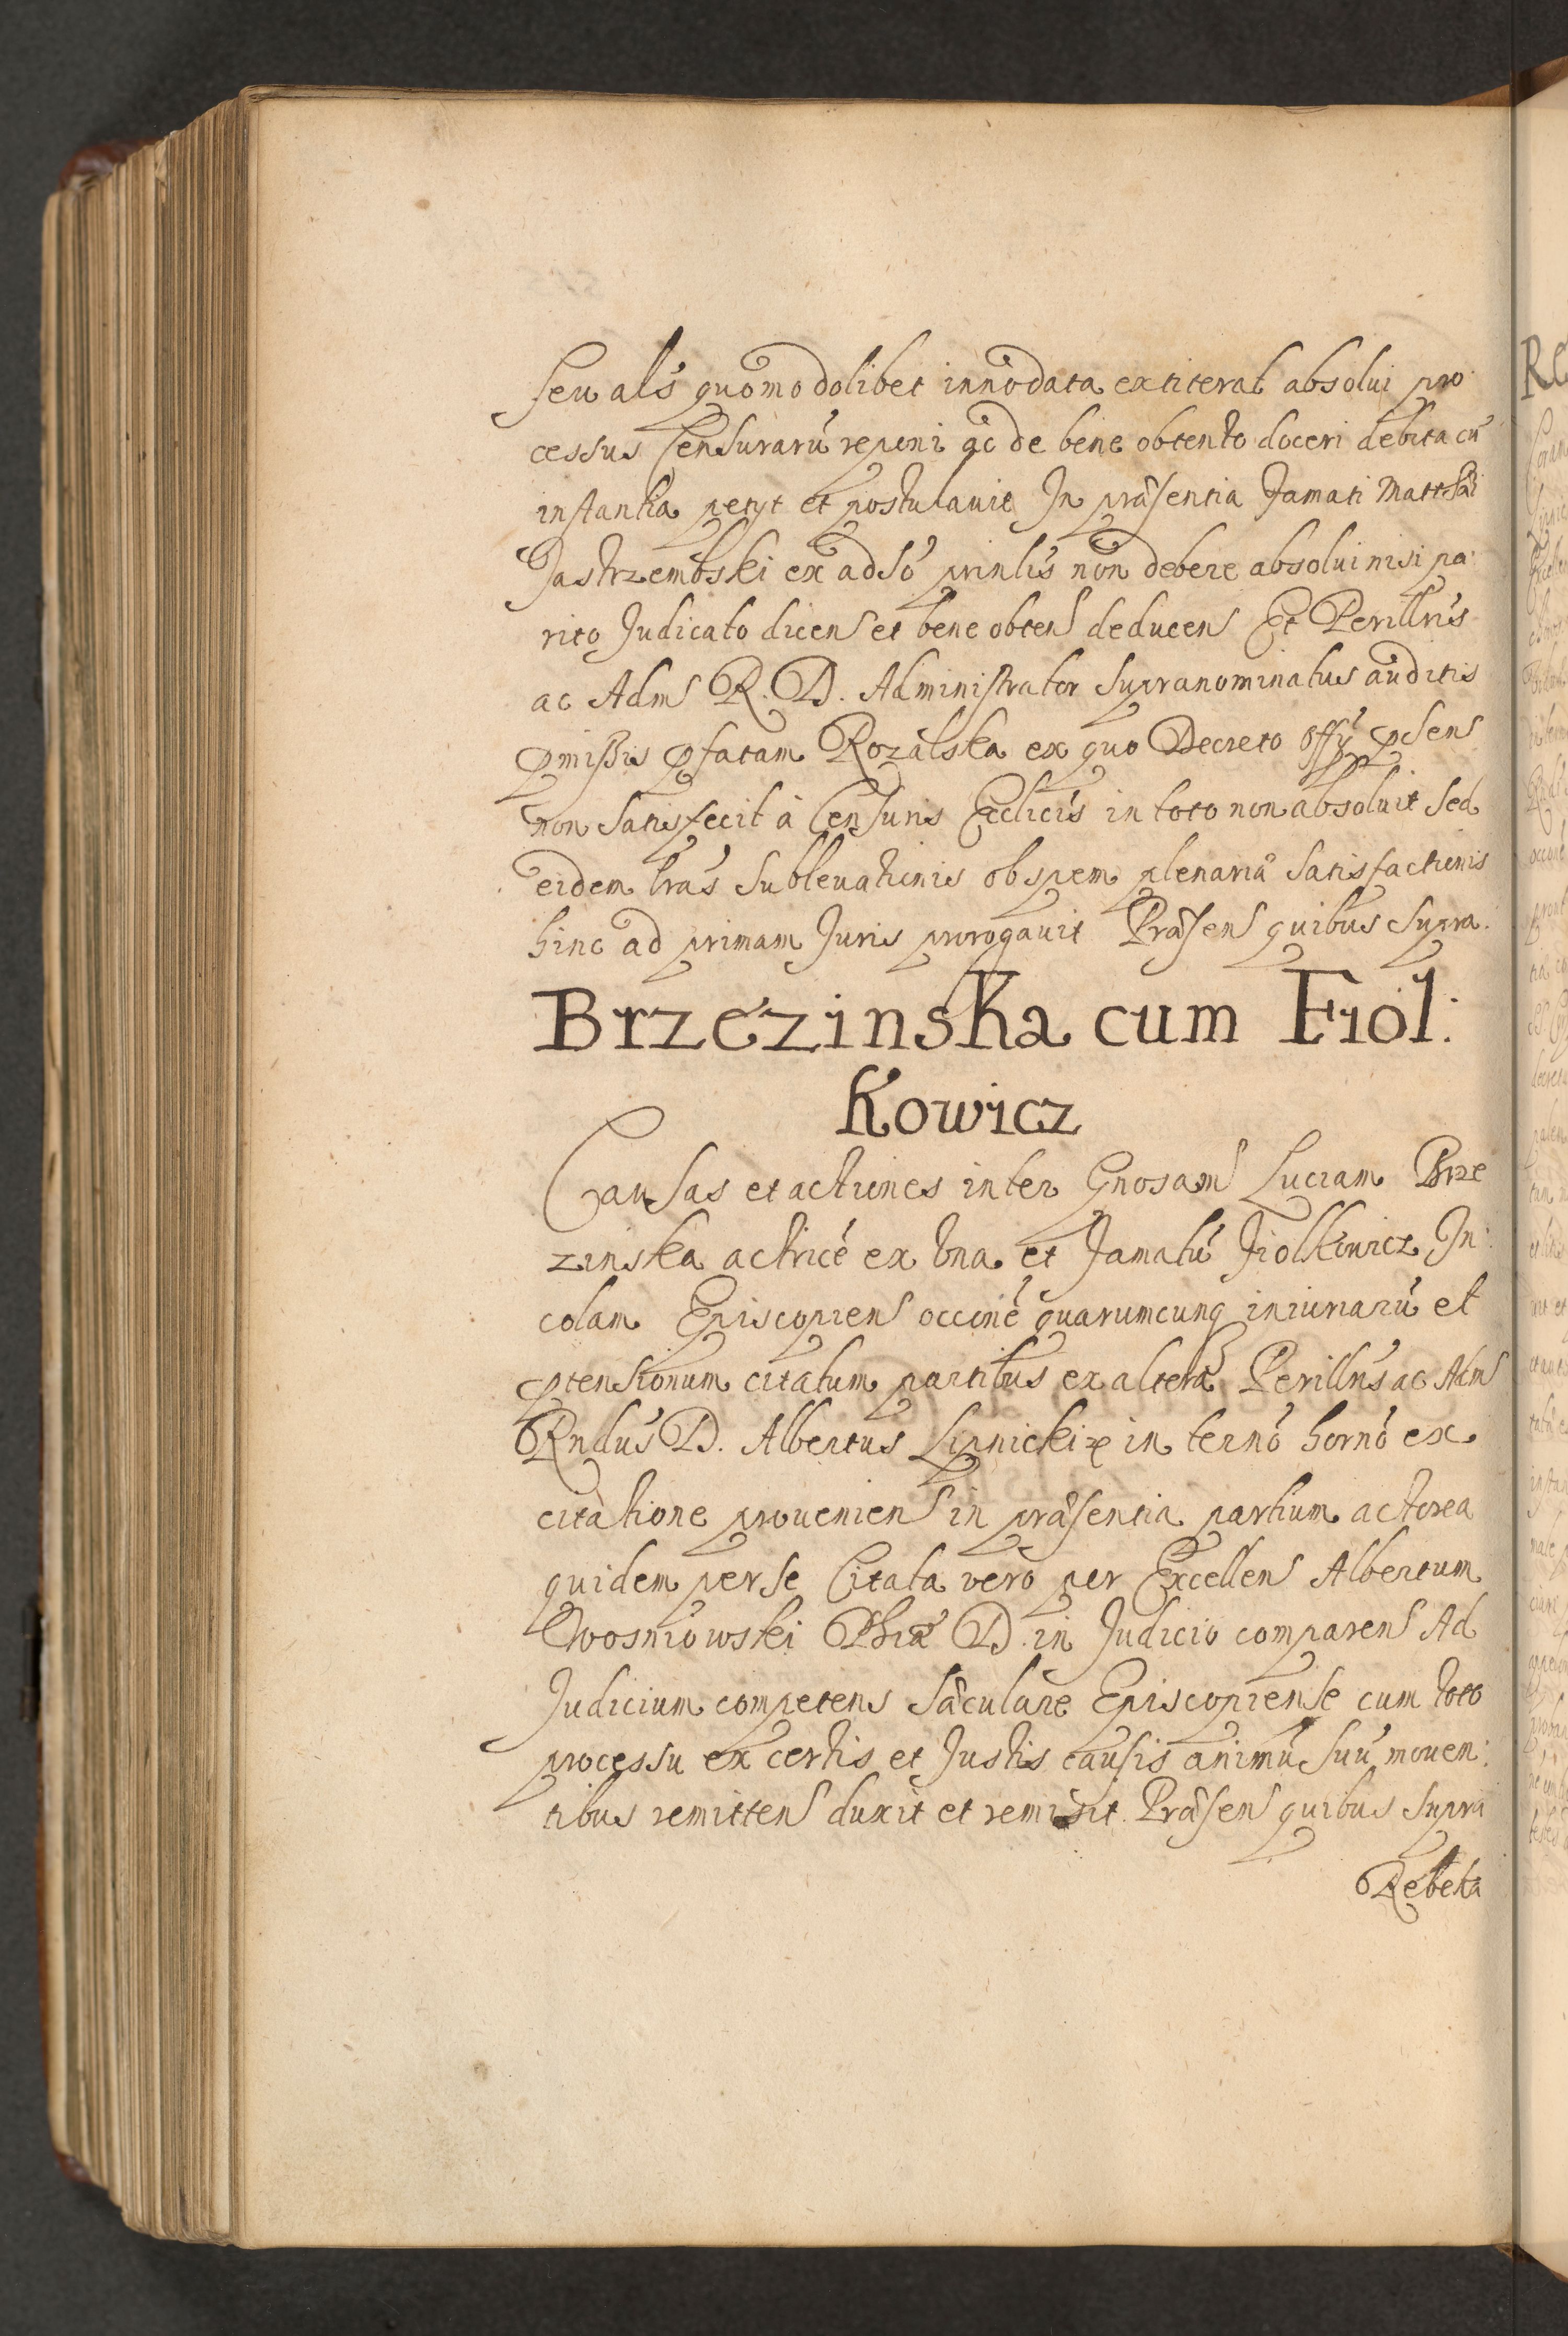 seu als quomodolibet innodata extiterat absolui pro
cessus Censurarū reponi ac de bene obtento doceri debita cū
instantia petyt et postulauit In præsentia Famati Matthæi
Jastrzembski ex adsō prinlis non debere absolui nisi pa
rito Judicato dicens et bene obtens deducens Et Perillris
ac Adms R. D. Administrator Supranominatus auditis
pmissis pfatam Rozalska ex quo Decreto Offÿ psens
non satisfecit à Censuris Ecclicis in toto non absoluit sed
eidem lras subleuationis ob spem plenariæ satisfactionis
hinc ad primam Juris prorogauit Præsens quibus supra.
Brzezinska cum Fiol:
kowicz
Causas et actiones inter Gnosam Luciam Brze
zinska actricē ex vna et Famatū Fiolkowicz In:
colam Episcopiens occōne quarumcunq iniuriarū et
ptensionum citatum partibus ex altera Perillris ac Adms
Rndus D. Albertus Lipnicki in termō hornō ex
citatione proueniens in præsentia partium actorea
quidem per se Citata vero per Excellens Albertum
Wosniowski Phiæ D. in Judicio comparens Ad
Judicium competens sæculare Episcopiense cum toto
processu ex certis et Justis causis animū suū mouen:
tibus remittens duxit et remisit. Præsens quibus supra
Rebeka